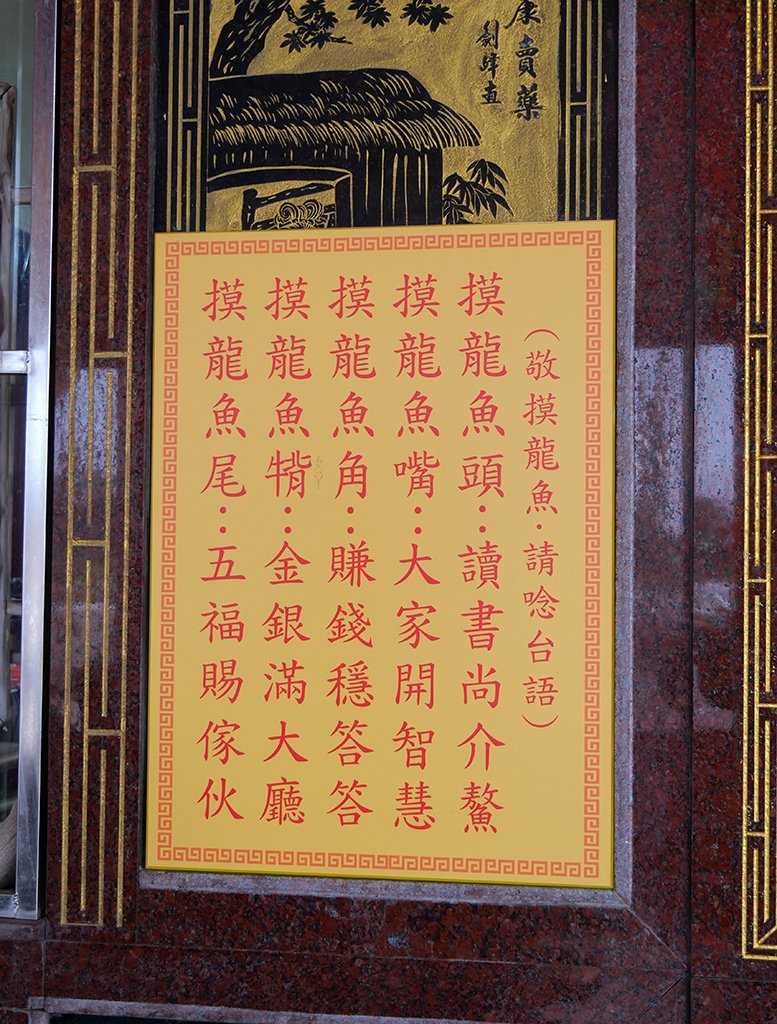 康賣藥
(敬摸龍魚·請唸台語)
摸龍魚頭:讀書尚介鰲
摸龍魚嘴:大家開智慧
摸龍魚角:賺錢穩答答
摸龍魚:金銀滿大廳
摸龍魚尾:五福賜傢伙